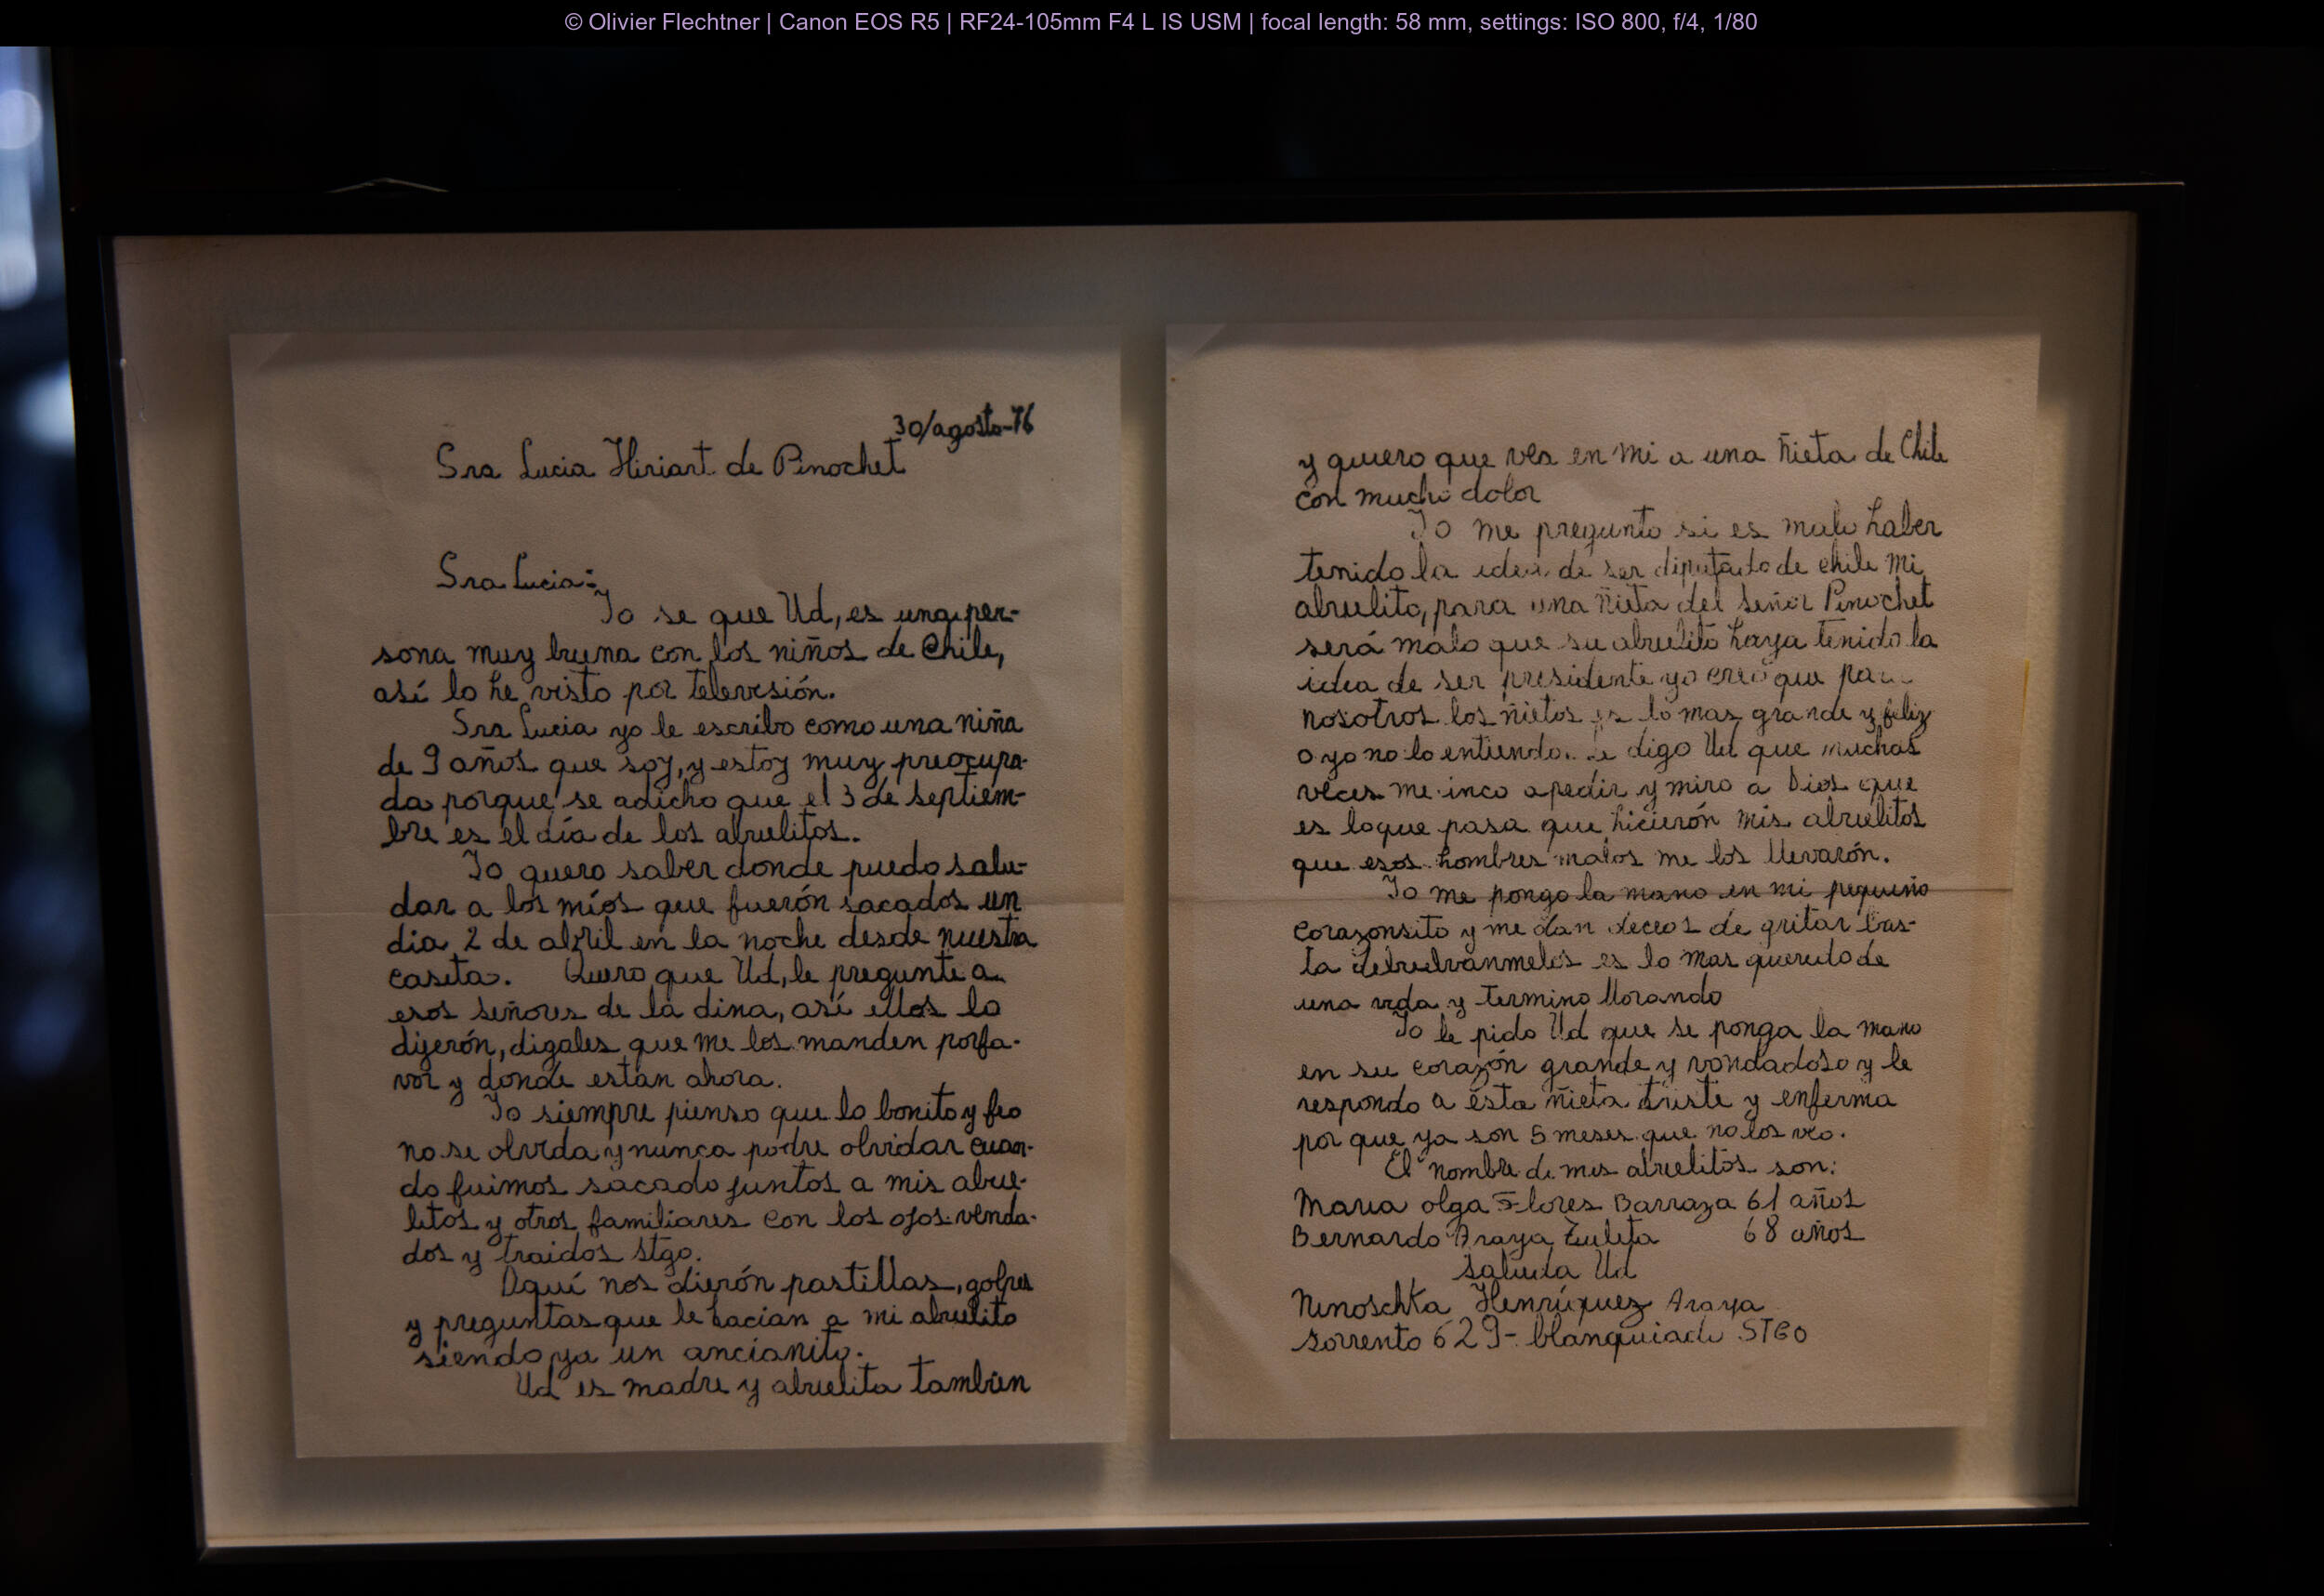 © Olivier Flechtner | Canon EOS R5 | RF24-105mm F4 L IS USM | focal length: 58 mm, settings: ISO 800, f/4, 1/80
30/agosto-76
Sra Lucia Hiriart de Pinochet
Sra Lucia:
Yo se que Ud, es una per-
sona muy buena con los niños de Chile,
así lo he visto por televisión.
Sra Lucia yo le escribo como una niña
de 9 años que soy, y estoy muy preocupa-
da porque se adicho que el 3 de septiem-
bre es el día de los abuelitos.
Yo quero saber donde puedo salu-
dar a los míos que fuerón sacados un
dia 2 de abril en la noche desde nuestra
casita. Quero que Ud, le pregunte a
esos señores de la dina, así ellos lo
dijerón, digales que me los manden porfa-
vor y donde están ahora.
Yo siempre pienso que lo bonito y feo
no se olvida y nunca podre olvidar cuan-
do fuimos sacado juntos a mis abue-
litos y otros familiares con los ojos venda-
dos y traidos stgo.
Aquí nos dierón pastillas, golpes
y preguntas que le hacian a mi abuelito
siendo ya un ancianito.
Ud es madre y abuelita también
y quiero que vea en mi a una ñieta de Chile
con mucho dolor
Yo me pregunto si es malo haber
tenido la idea de ser diputado de chile mi
abuelito, para una ñieta del señor Pinochet
será malo que su abuelito haya tenido la
idea de ser presidente yo creo que
nosotros los ñietos es lo mas grande y feliz
o yo no lo entiendo. Le digo Ud que muchas
veces me inco apedir y miro a Dios que
es loque pasa que hicierón mis abuelitos
que esos hombres malos me los llevarón.
Yo me pongo la mano en mi pequeño
corazonsito y me dan deceos de gritar bas-
ta debuelvanmelos es lo mas querido de
una vida y termino llorando
Yo le pido Ud que se ponga la mano
en su corazón grande y vondadoso y le
respondo a ésta ñieta triste y enferma
por que ya son 5 meses que no los veo.
El nombre de mis abuelitos son:
Maria olga Flores Barraza 61 años
Bernardo Araya Zuleta 68 años
Saluda Ud
Ninoschka Henríquez Araya
sorrento 629- blanquiado STGO